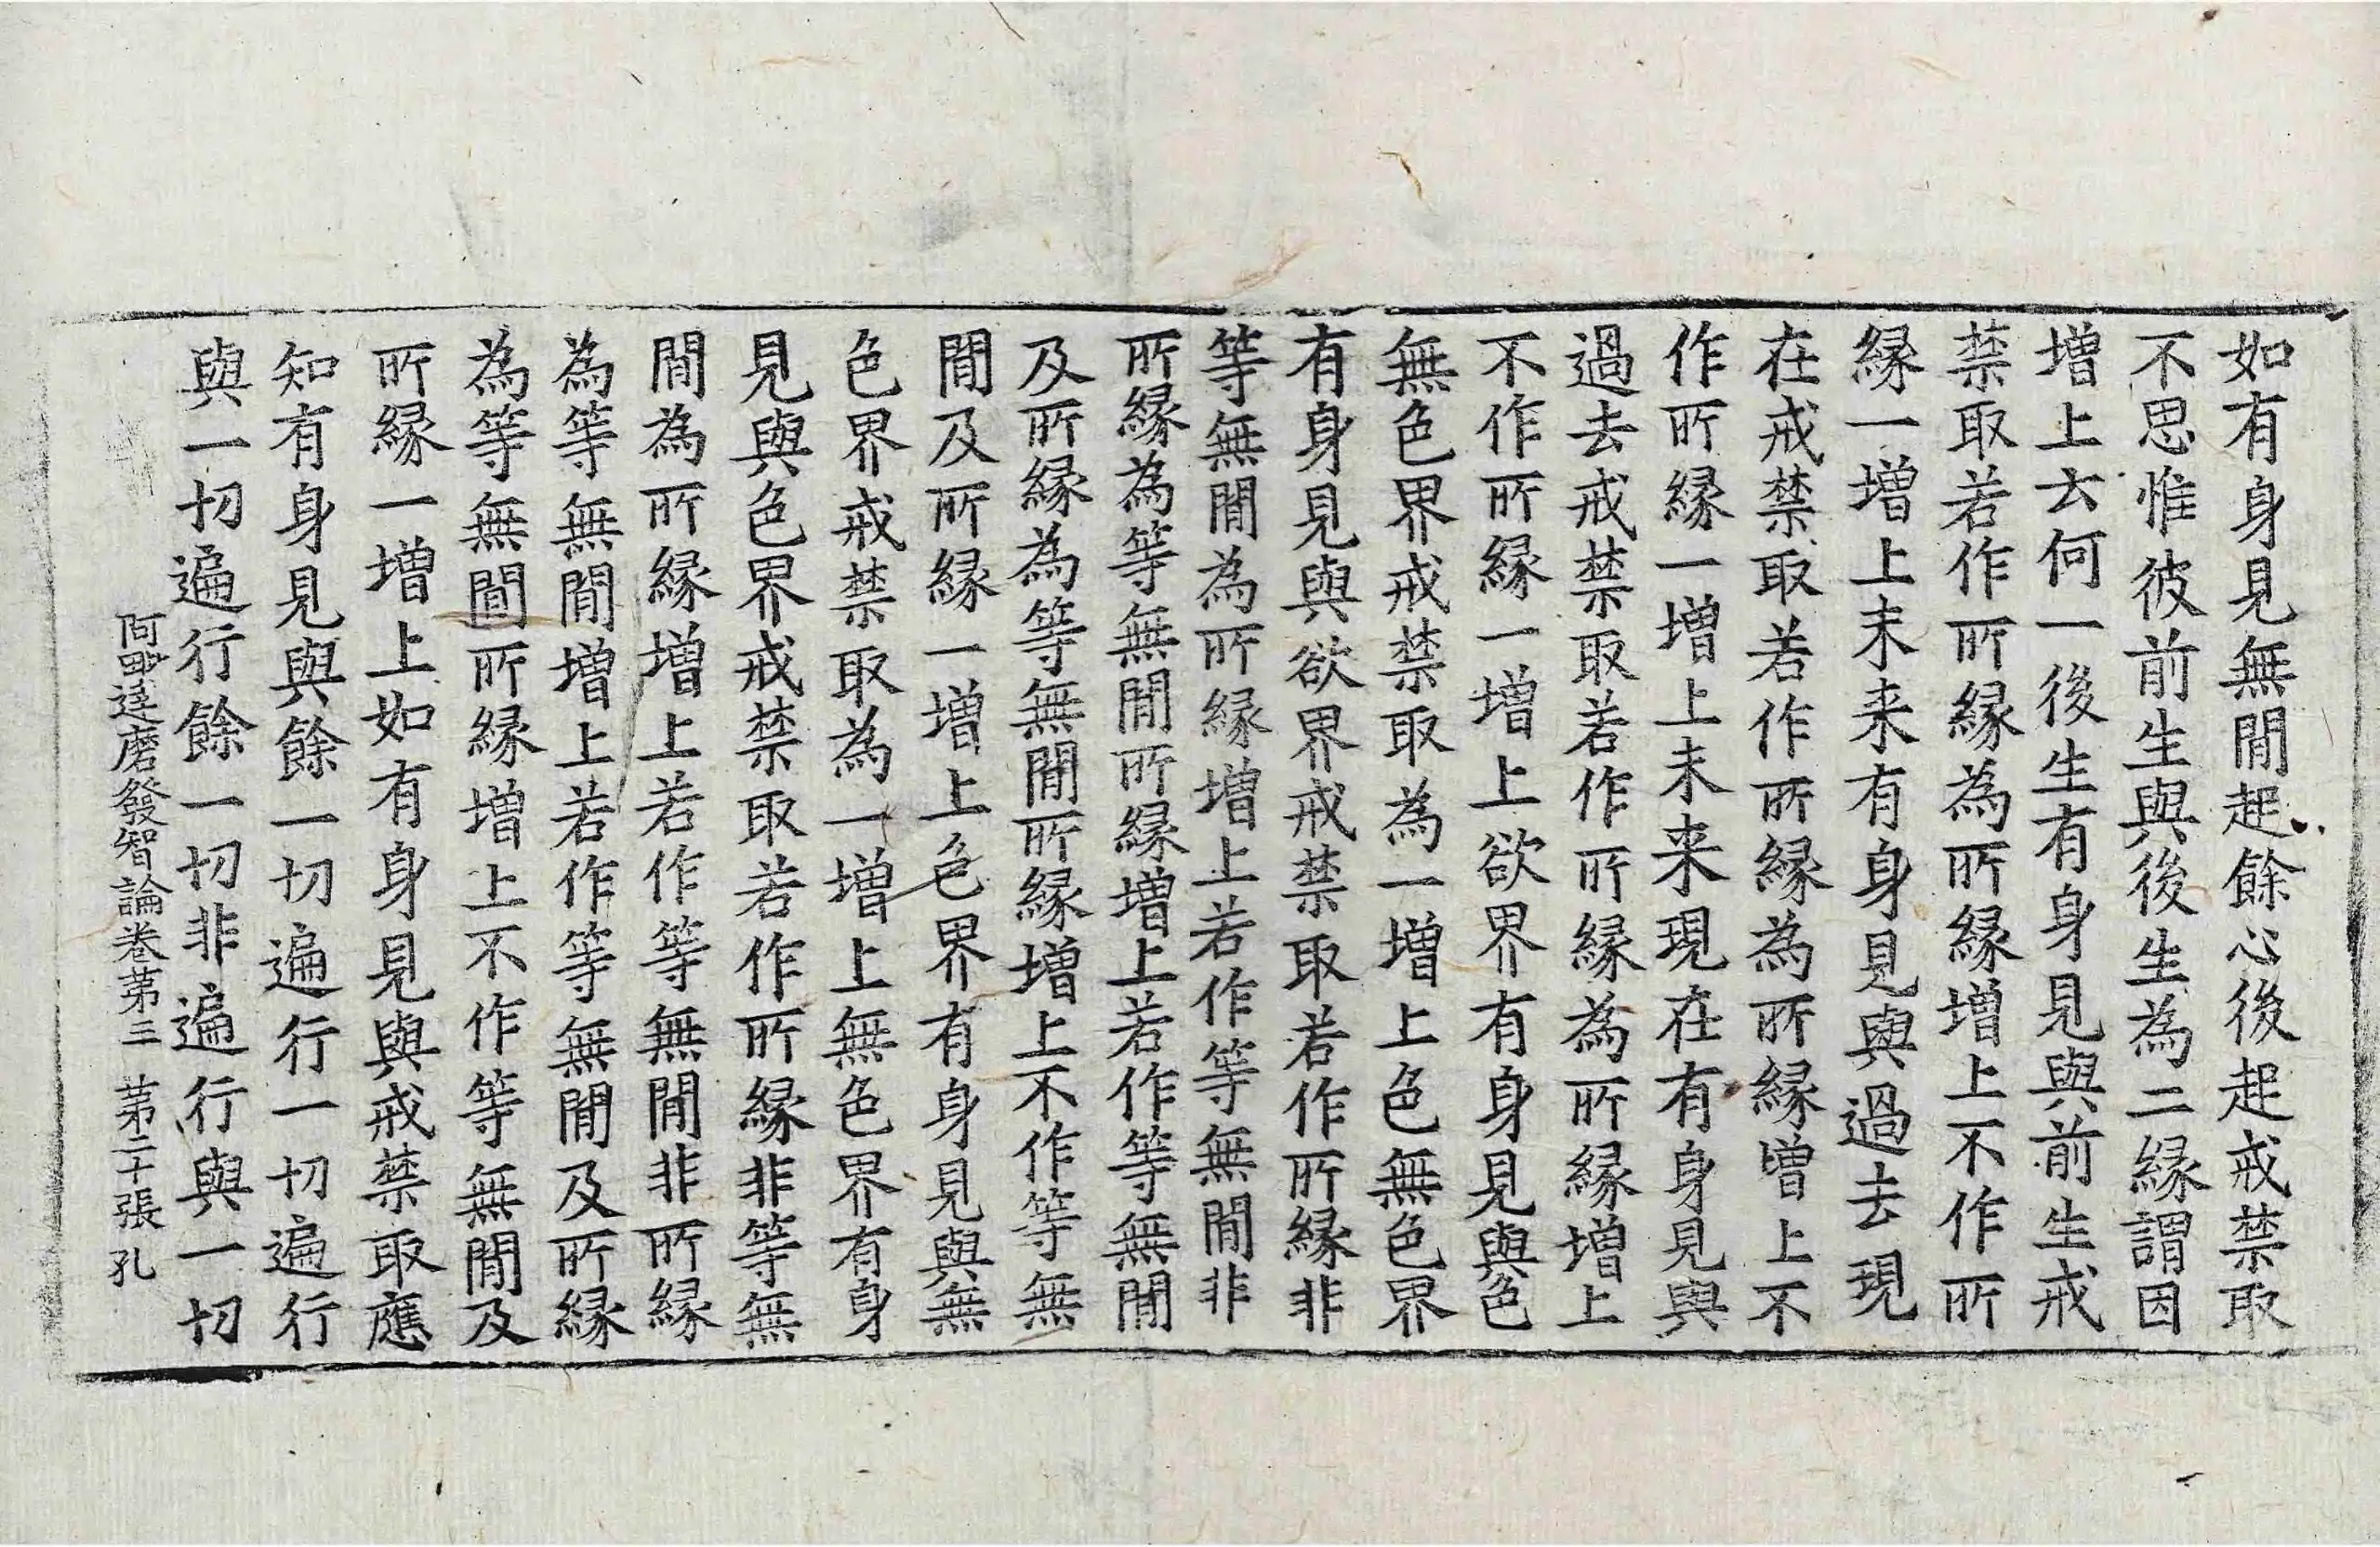 如有身見無間起餘心後起戒禁取
不思惟彼前生與後生為二縁謂因
增上云何一後生有身見與前生戒
禁取若作所縁為所縁增上不作所
縁一增上未来有身見與過去現
在戒禁取若作所縁為所縁增上不
作所縁一增上未来現在有身見與
過去戒禁取若作所縁為所縁增上
不作所縁一增上欲界有身見與色
無色界戒禁取為一增上色無色界
有身見與欲界戒禁取若作所縁非
等無間為所縁增上若作等無間非
所縁為等無間所縁增上若作等無間
及所縁為等無間所縁增上不作等無
間及所縁一增上色界有身見與無
色界戒禁取為一增上無色界有身
見與色界戒禁取若作所縁非等無
間為所縁增上若作等無間非所縁
為等無間增上若作等無間及所縁
為等無間所縁增上不作等無間及
所縁一增上如有身見與戒禁取應
知有身見與餘一切遍行一切遍行
與一切遍行餘一切非遍行與一切
阿毗達磨發智論卷第三 第二十張 孔